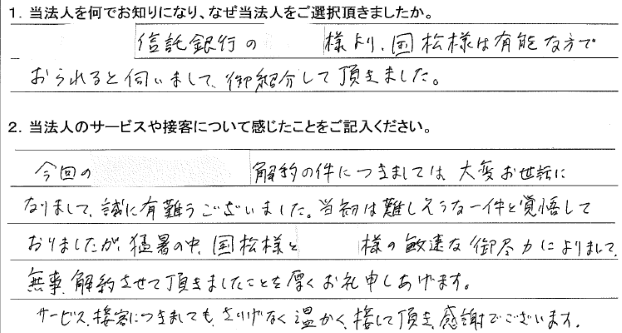 1．当法人を何でお知りになり、なぜ当法人をご選択頂きましたか。
信託銀行の　　　様より、国松様は有能な方で
おられると伺いまして、御紹介して頂きました。
2．当法人のサービスや接客について感じたことをご記入ください。
今回の　　　解約の件につきましては、大変お世話に
なりまして、誠に有難うございました。当初は難しそうな一件と覚悟して
おりましたが、猛暑の中、国松様と　　　様の敏速な御尽力によりまして、
無事、解約させて頂きましたことを厚くお礼申しあげます。
サービス、接客につきましても、さりげなく温かく、接して頂き、感謝でございます。